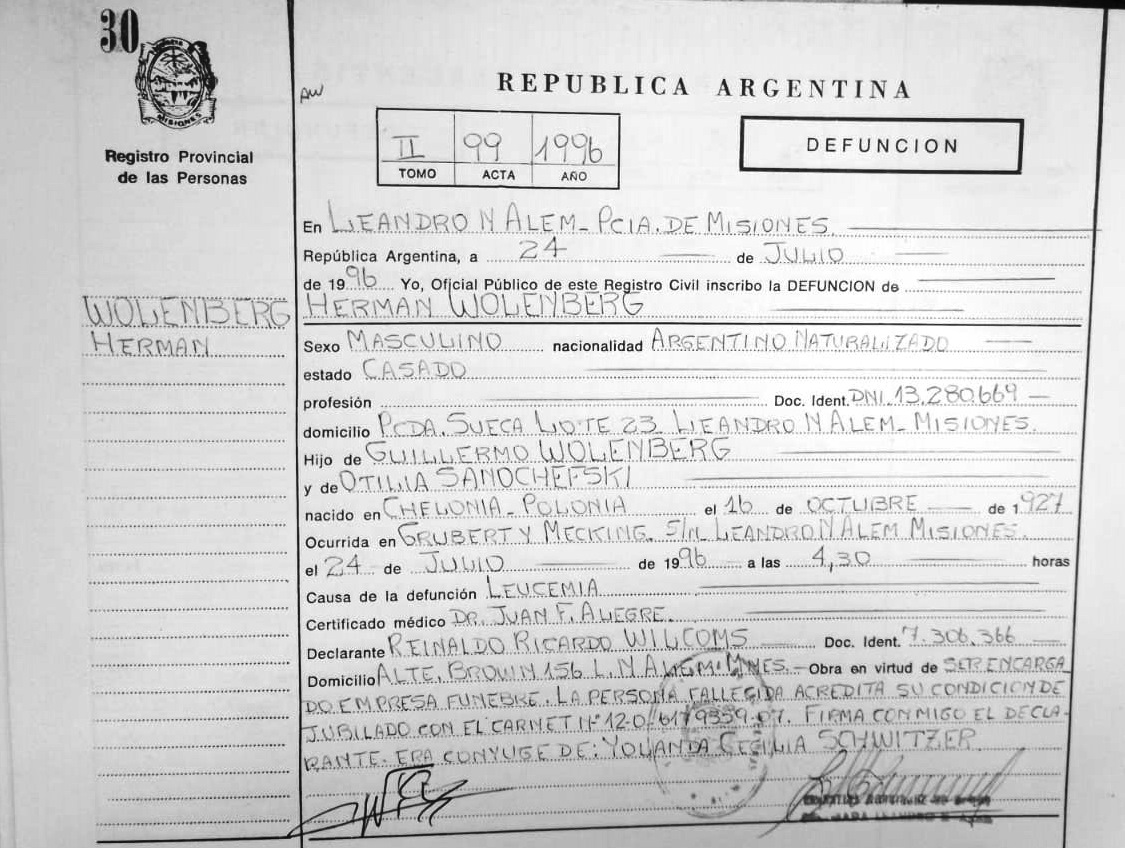 30
MISIONES
Registro Provincial
de las Personas
WOLENBERG
HERMAN
AW
REPUBLICA ARGENTINA
II 99 1996
TOMO ACTA AÑO
DEFUNCION
En LEANDRO N ALEM - PCIA. DE MISIONES.
República Argentina, a 24 de JULIO
de 1996 Yo, Oficial Público de este Registro Civil inscribo la DEFUNCION de
HERMAN WOLENBERG
Sexo MASCULINO nacionalidad ARGENTINO NATURALIZADO
estado CASADO
profesión Doc. Ident. DNI. 13.280.669
domicilio PCDA. SUECA LOTE 23. LEANDRO N ALEM - MISIONES.
Hijo de GUILLERMO WOLENBERG
y de OTILIA SANOCHEFSKI
nacido en CHELONIA - POLONIA el 16 de OCTUBRE de 1.927
Ocurrida en GRUBERT Y MECKING. S/N. LEANDRO N ALEM MISIONES.
el 24 de JULIO de 1996 a las 4,30 horas
Causa de la defunción LEUCEMIA
Certificado médico DR. JUAN F. ALEGRE.
Declarante REINALDO RICARDO WILCOMS Doc. Ident. 7.306.366
Domicilio ALTE. BROWN 156 L. N ALEM. MNES. - Obra en virtud de SER ENCARGA
DO EMPRESA FUNEBRE. LA PERSONA FALLECIDA ACREDITA SU CONDICION DE
JUBILADO CON EL CARNET Nº 12-0/6179359-07. FIRMA CONMIGO EL DECLA-
RANTE. ERA CONYUGE DE: YOLANDA CECILIA SCHWITZER